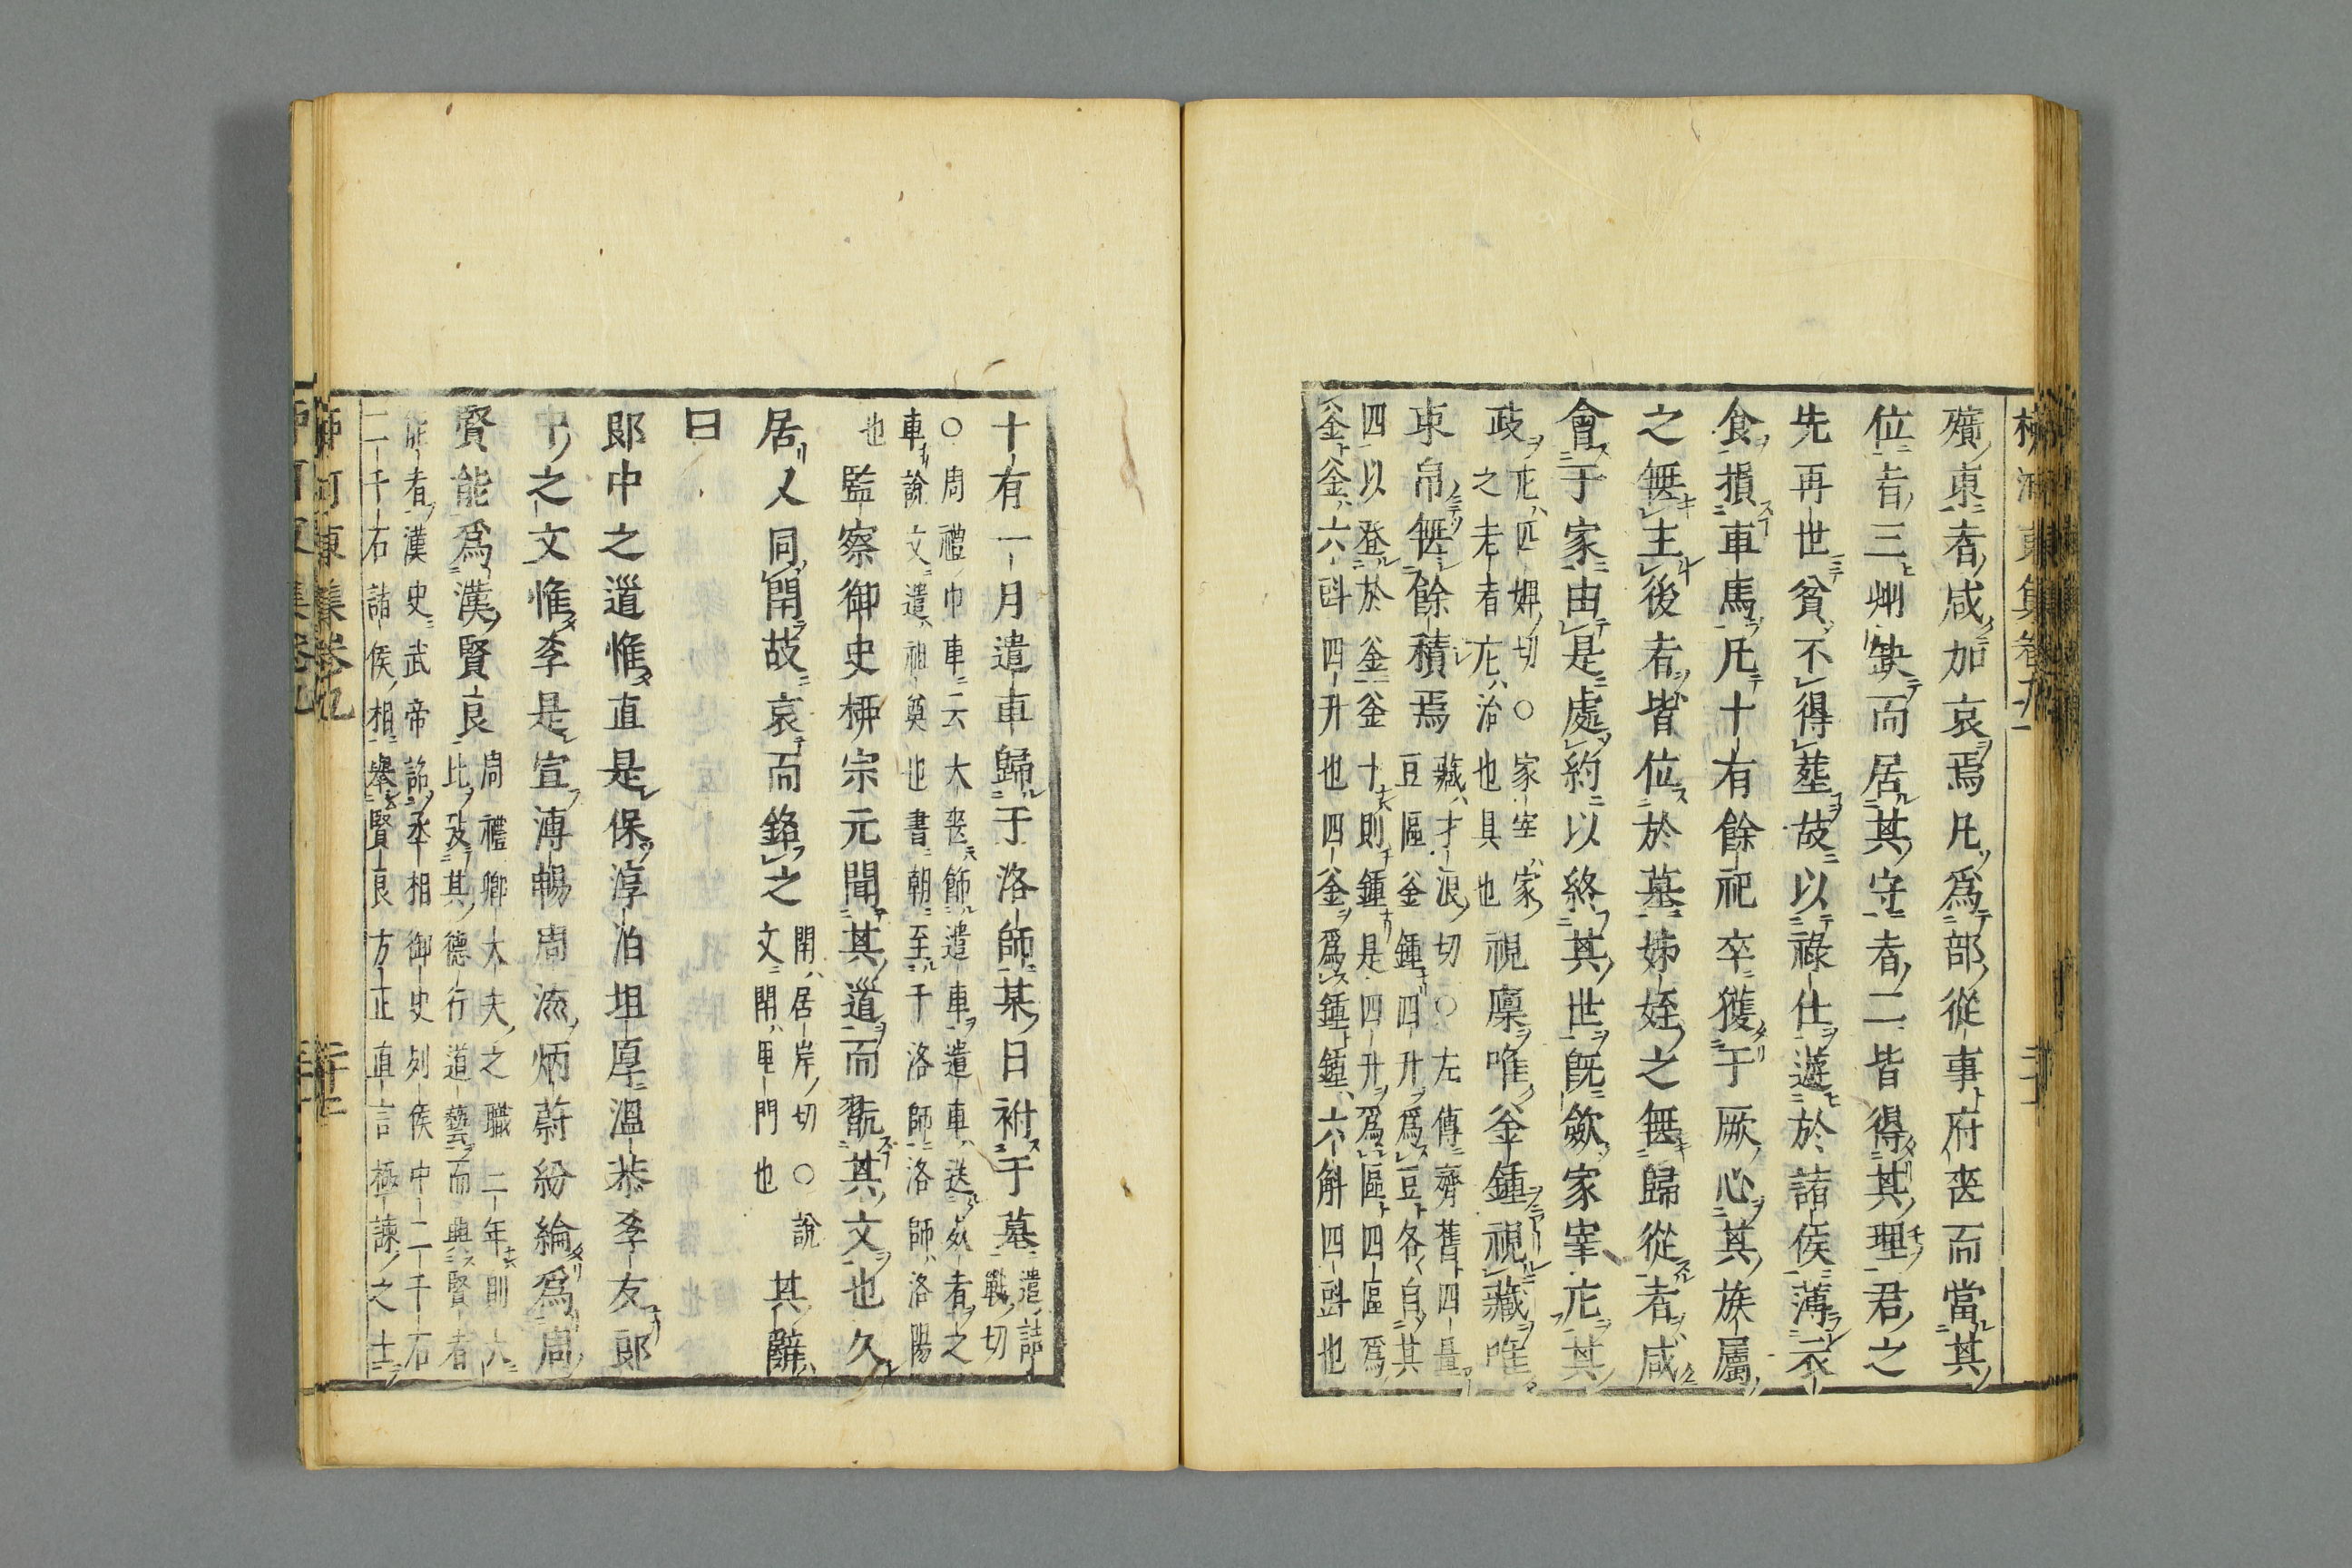 殯東者咸加哀焉凡爲部從事府喪而當其
位者三州缺而居其守者二皆得其理君之
先再世貧不得塟故以祿仕遊於諸侯薄衣
食損車馬凡十有餘祀卒獲于厥心其族屬
之無主後者皆位於墓姊姪之無歸從者咸
會于家由是處約以終其世既歛家宰庀其
政庀匹婢切〇家宰家
之老者庀治也具也視廩唯釜鍾視藏唯
束帛無餘積焉藏才浪切〇左傳齊舊四量
豆區釜鍾四升爲豆各自其
四以登於釜釜十則鍾是四升爲區四區爲
釜釜六㪷四升也四釜爲鍾鍾六斛四㪷也
十有一月遣車歸于洛師某日祔于墓遣詰
戰切
〇周禮巾車云大喪飾遣車遣車送死者之
車說文遣祖奠也書朝至于洛師洛師洛陽
也
監察御史柳宗元聞其道而翫其文也久
居又同閈故哀而銘之閈居岸切〇說
文閈里門也其辭
曰
郎中之道惟直是保淳泊坦厚溫恭孝友郎
中之文惟孝是宣溥暢周流炳蔚紛綸爲周
賢能爲漢賢良周禮卿大夫之職二年則大
比攷其德行道藝而興賢者
能者漢史武帝詔丞相御史列侯中二千石
二千石諸侯相舉賢良方正直言極諫之士
柳河東集卷九